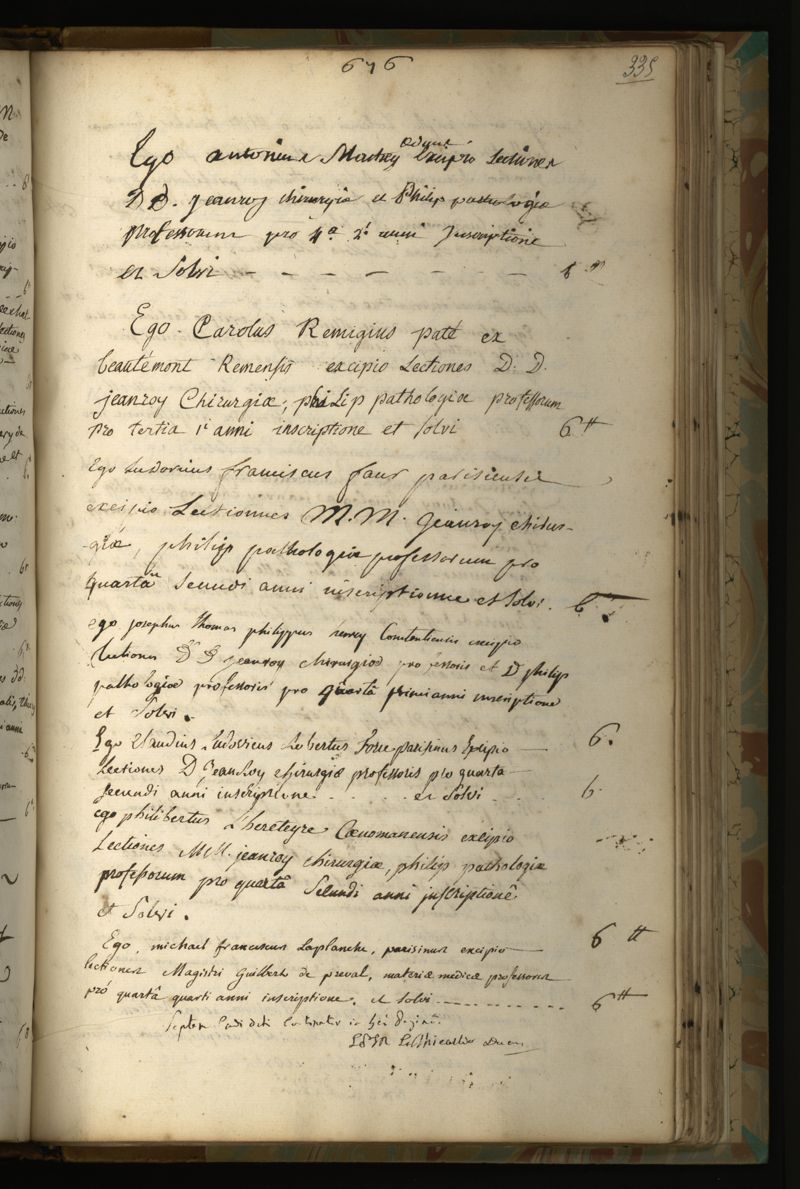 676
335
Ego antonius excipio Lectiones
D D. jeanroy chirurgiæ et Philip pathologiæ
professorum pro 4a 2i anni Inscriptione
et Solvi
Ego Carolus Remigius paté ex
beautémont Remensis excipio Lectiones D. D.
jeanroy Chirurgiæ, philip pathologiæ professorum
pro tertia 1i anni inscriptione et solvi 6tt
Ego Ludovicus franciscus faur parisiensis
excipio Lectionnes M.M. jeanroy chirur-
-giæ, philip pathologiæ professorum pro
quarta secundi anni inscriptionne et Solvi. 6
ego josephus thomas philippus excipio
lectiones jeanroy chirurgiæ professoris et D philip
pathologiæ professoris pro quartâ primi anni inscriptione
et Solvi.
Ego Claudius Ludovicus Robertus parisinus Excipio 6.
Lectiones D jeanRoy chirurgiæ professoris pro quarta
secundi anni inscriptione. et Solvi 6
ego philibertus Cœnomanensis excipio
Lectiones MM. jeanroy chirurgiæ, philip pathologiæ
professorum pro quartâ Secundi anni inscriptione
et Solvi.
Ego, michael franciscus Laplanche, parisinus excipio 6 tt
lectiones Magistri Guilbert de preval, materiæ medicæ professoris
pro quartâ quarti anni inscriptione. et solvi 6tt